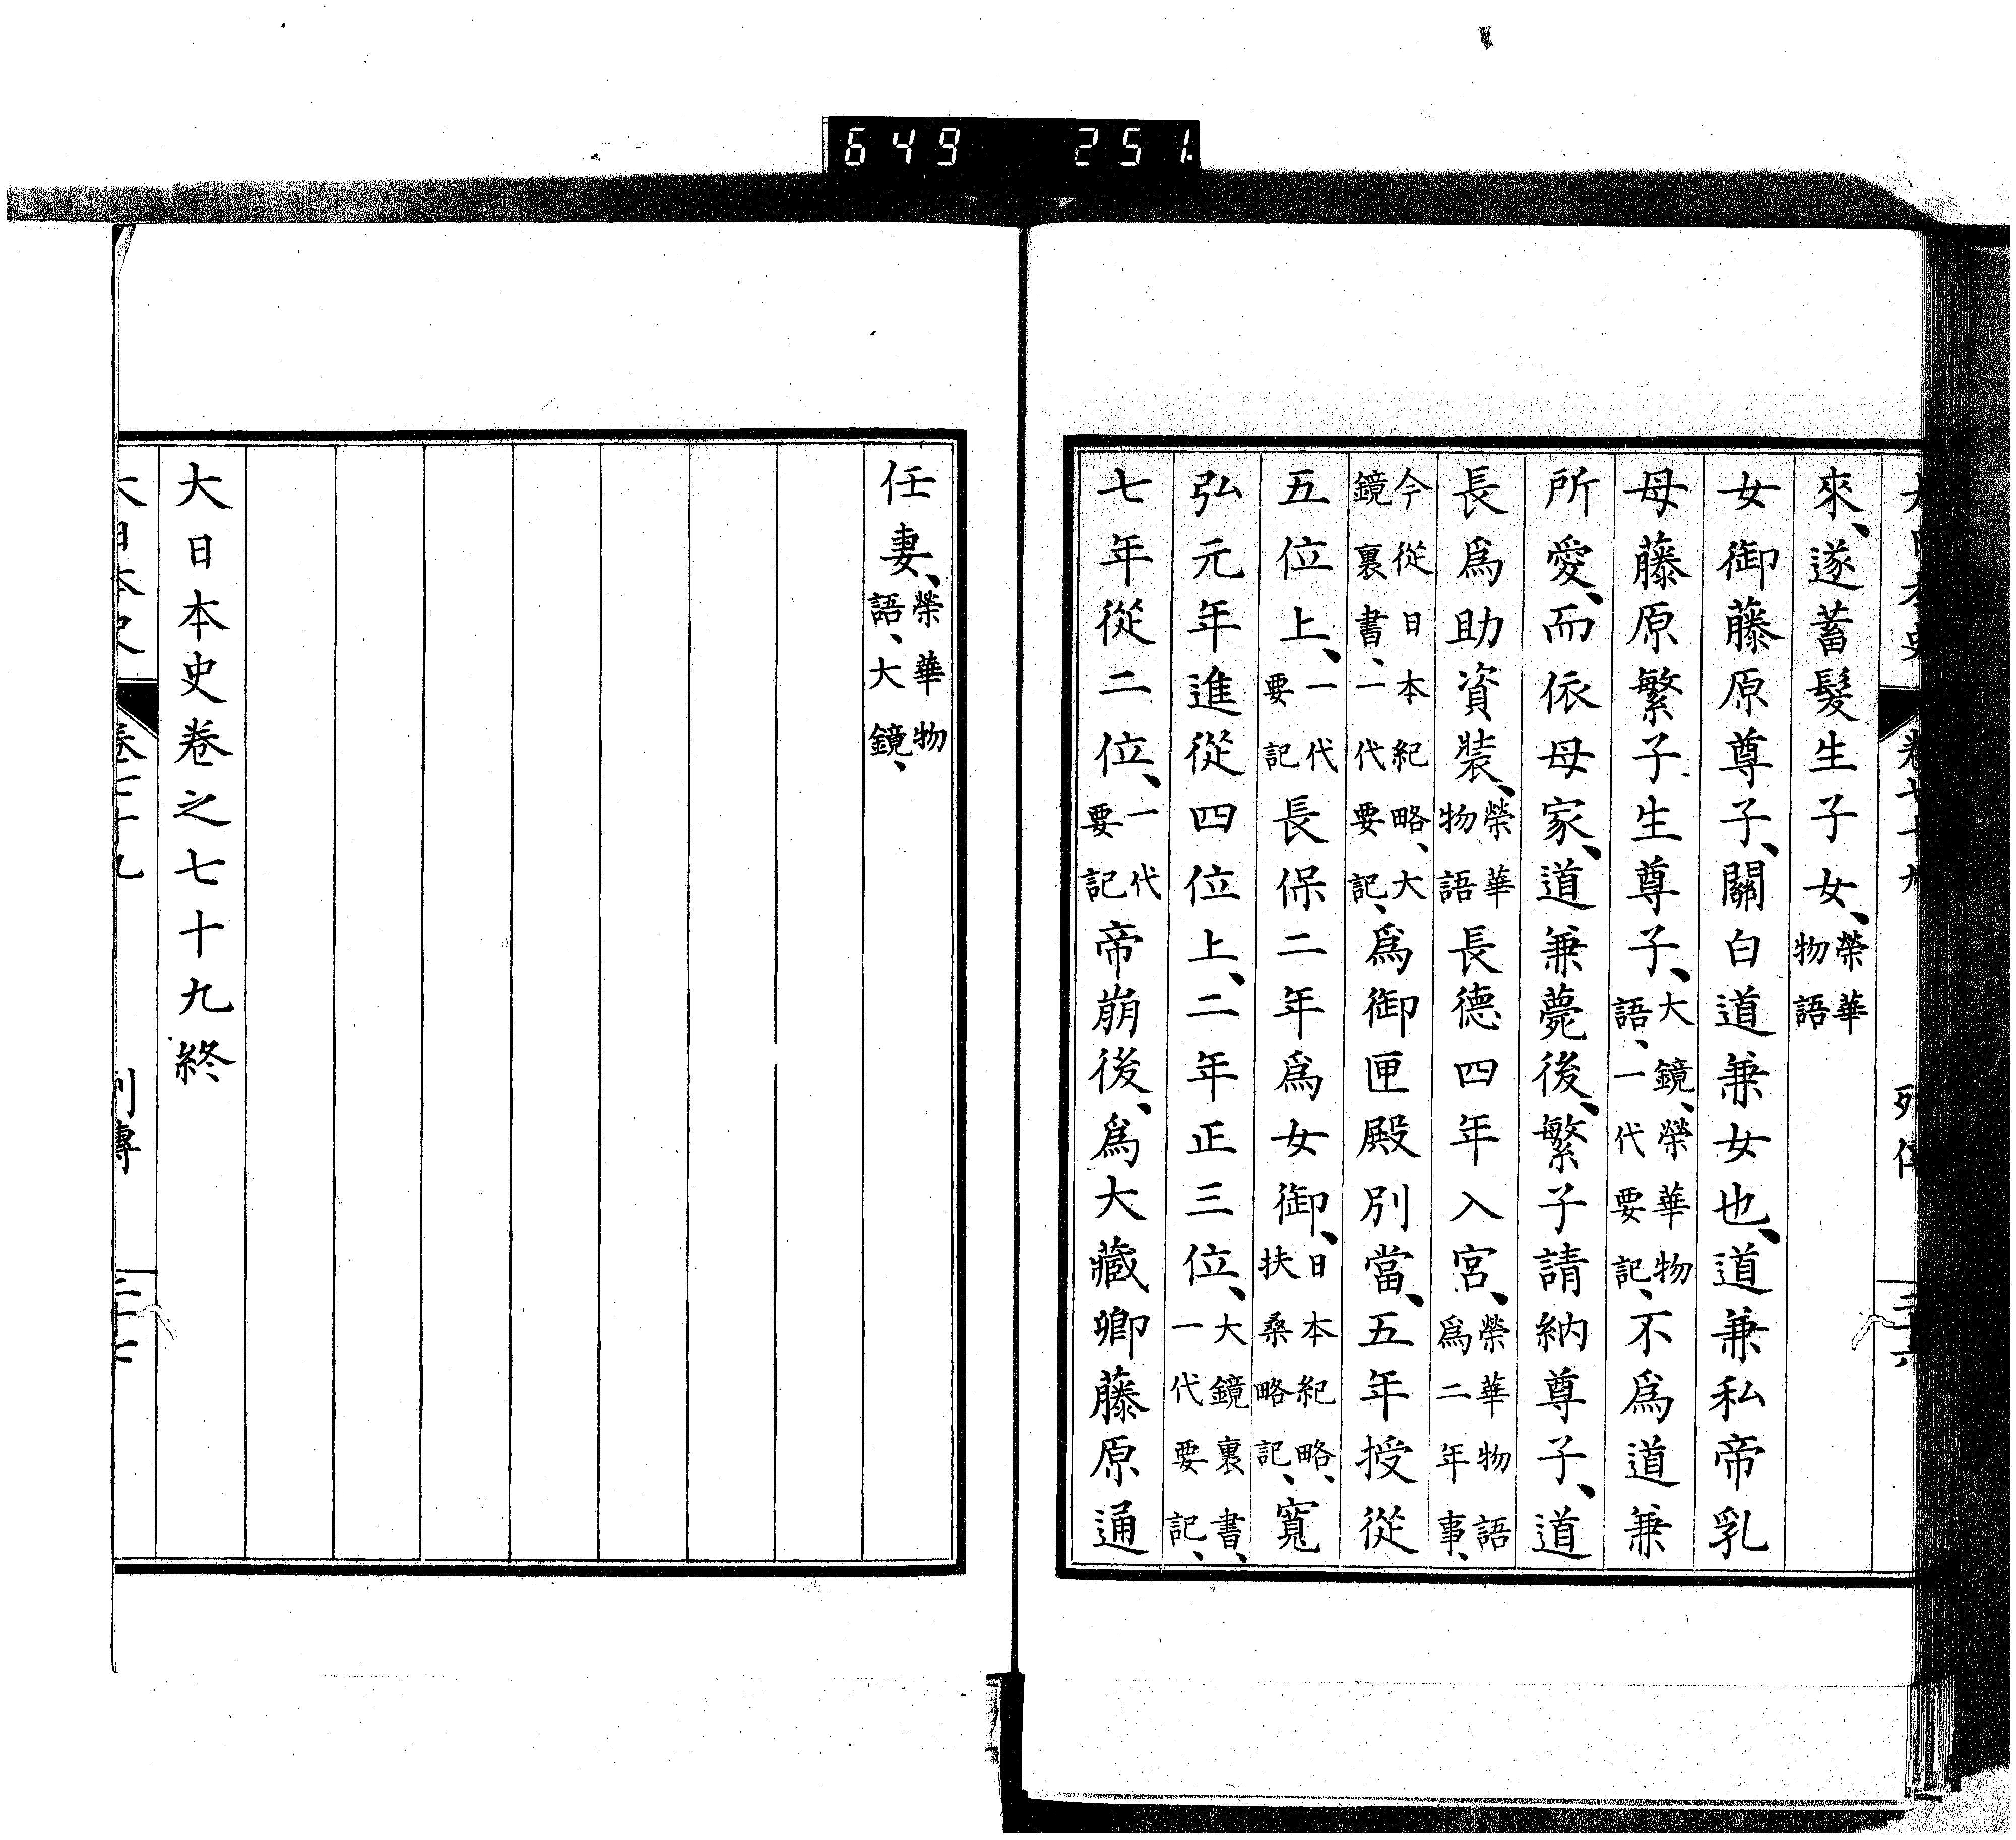 649 251
大日本史 卷七十九 列傳 二十六
來、遂蓄髮生子女、榮華物語
女御藤原尊子、關白道兼女也、道兼私帝乳
母藤原繁子生尊子、大鏡、榮華物語、一代要記、不爲道兼
所愛、而依母家、道兼薨後、繁子請納尊子、道
長爲助資裝、榮華物語長德四年入宮、榮華物語爲二年事、
今從日本紀略、大鏡裏書、一代要記、爲御匣殿別當、五年授從
五位上、一代要記長保二年爲女御、日本紀略、扶桑略記、寬
弘元年進從四位上、二年正三位、大鏡裏書、一代要記、
七年從二位、一代要記帝崩後、爲大藏卿藤原通
任妻、榮華物語、大鏡、
大日本史卷之七十九終
大日本史 卷七十九 列傳 二十七